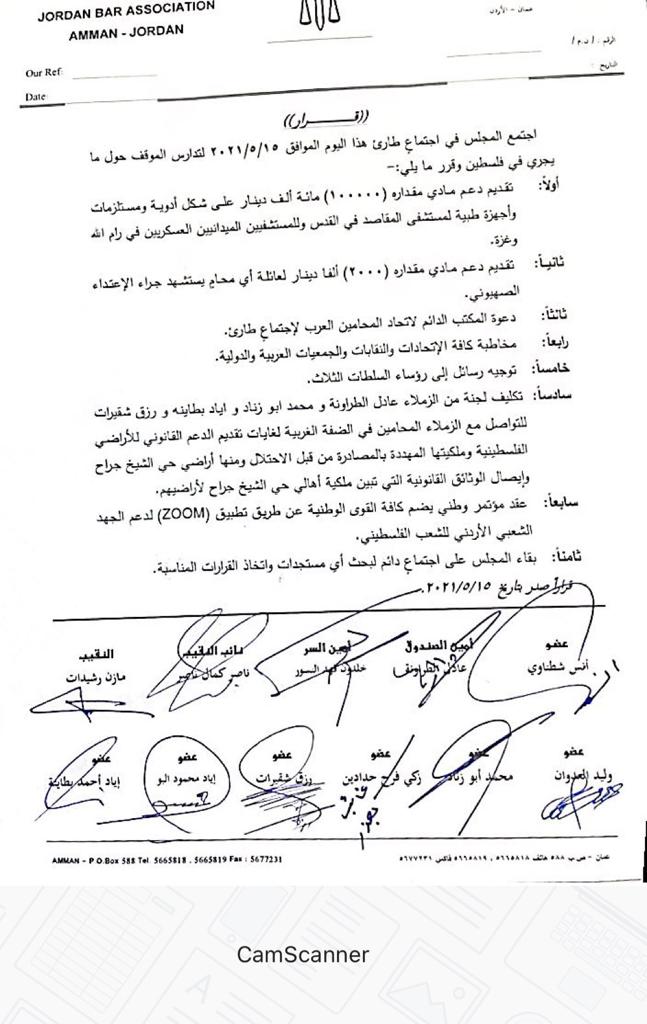 JORDAN BAR ASSOCIATION
AMMAN - JORDAN
عمان - الأردن
Our Ref:
Date
التاريخ :
((قـــــرار))
اجتمع المجلس في اجتماع طارئ هذا اليوم الموافق ٢٠٢١/٥/١٥ لتدارس الموقف حول ما
يجري في فلسطين وقرر ما يلي:-
أولاً: تقديم دعم مادي مقداره (١٠٠٠٠٠) مائة ألف دينار على شكل أدوية ومستلزمات
وأجهزة طبية لمستشفى المقاصد في القدس وللمستشفيين الميدانيين العسكريين في رام الله
وغزة.
ثانياً: تقديم دعم مادي مقداره (٢٠٠٠) ألفا دينار لعائلة أي محامٍ يستشهد جراء الإعتداء
الصهيوني.
ثالثاً: دعوة المكتب الدائم لاتحاد المحامين العرب لإجتماع طارئ.
رابعاً: مخاطبة كافة الإتحادات والنقابات والجمعيات العربية والدولية.
خامساً: توجيه رسائل إلى رؤساء السلطات الثلاث.
سادساً: تكليف لجنة من الزملاء عادل الطراونة و محمد ابو زناد و اياد بطاينه و رزق شقيرات
للتواصل مع الزملاء المحامين في الضفة الغربية لغايات تقديم الدعم القانوني للأراضي
الفلسطينية وملكيتها المهددة بالمصادرة من قبل الاحتلال ومنها أراضي حي الشيخ جراح
وإيصال الوثائق القانونية التي تبين ملكية أهالي حي الشيخ جراح لأراضيهم.
سابعاً: عقد مؤتمر وطني يضم كافة القوى الوطنية عن طريق تطبيق (ZOOM) لدعم الجهد
الشعبي الأردني للشعب الفلسطيني.
ثامناً: بقاء المجلس على اجتماع دائم لبحث أي مستجدات واتخاذ القرارات المناسبة.
قراراً صدر بتاريخ ٢٠٢١/٥/١٥.
عضو أمين الصندوق أمين السر نائب النقيب النقيب
أنس شطناوي عادل الطراونة خلدون فهد النسور ناصر كمال ناصر مازن رشيدات
عضو عضو عضو عضو عضو عضو
وليد العدوان محمد أبو زناد زكي فرح حدادين رزق شقيرات إياد محمود البو إياد أحمد بطاينة
AMMAN - P.O.Box 588 Tel. 5665818 . 5665819 Fax : 5677231
عمان - ص ب ٥٨٨ هاتف ٥٦٦٥٨١٨ . ٥٦٦٥٨١٩ فاكس ٥٦٧٧٢٣١
CamScanner